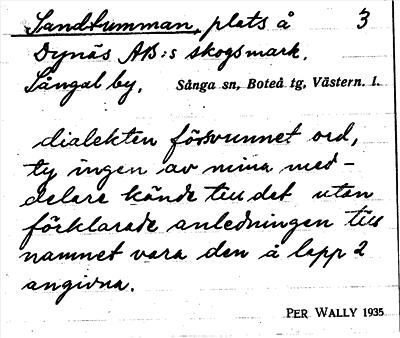 Sandtumman, plats å 3
Dynäs AB:s skogsmark.
Sångal by. Sånga sn, Boteå tg, Västern. l.
dialekten försvunnet ord,
ty ingen av mina med-
delare kände till det utan
förklarade anledningen till
namnet vara den å lapp 2
angivna.
PER WALLY 1935